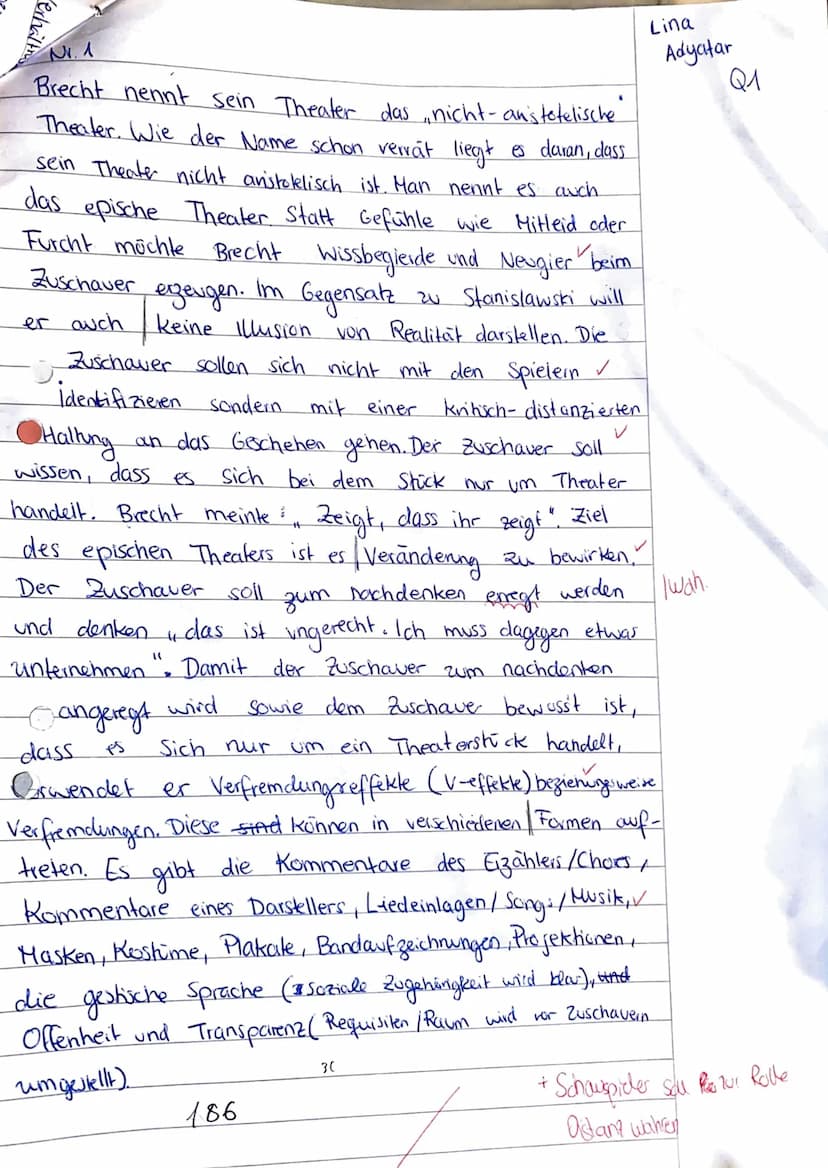 Lina
Adyatar
Q1
Nr. 1
Brecht nennt sein Theater das „nicht-aristotelische"
Theater. Wie der Name schon verrät liegt es daran, dass
sein Theater nicht aristoklisch ist. Man nennt es auch
das epische Theater. Statt Gefühle wie Mitleid oder
Furcht möchte Brecht Wissbegierde und Neugier beim
Zuschauer erzeugen. Im Gegensatz zu Stanislawski will
er auch keine Illusion von Realität darstellen. Die
Zuschauer sollen sich nicht mit den Spielern
identifizieren sondern mit einer kritisch-distanzierten
Haltung an das Geschehen gehen. Der Zuschauer soll
wissen, dass es sich bei dem Stück nur um Theater
handelt. Brecht meinte: „Zeigt, dass ihr zeigt". Ziel
des epischen Theaters ist es Veränderung zu bewirken.
Der Zuschauer soll zum nachdenken erregt werden
und denken „das ist ungerecht. Ich muss dagegen etwas
unternehmen". Damit der Zuschauer zum nachdenken
angeregt wird sowie dem Zuschauer bewusst ist,
dass es sich nur um ein Theaterstück handelt,
verwendet er Verfremdungseffekte (V-effekte) beziehungsweise
Verfremdungen. Diese sind können in verschiedenen Formen auf-
treten. Es gibt die Kommentare des Erzählers/Chors,
Kommentare eines Darstellers, Liedeinlagen/Songs/Musik,
Masken, Kostüme, Plakate, Bandaufzeichnungen, Projektionen,
die gestische Sprache (soziale Zugehörigkeit wird klar), und
Offenheit und Transparenz (Requisiten/Raum wird vor Zuschauern
umgestellt).
186
+ Schauspieler soll zur Rolle
Distanz wahren